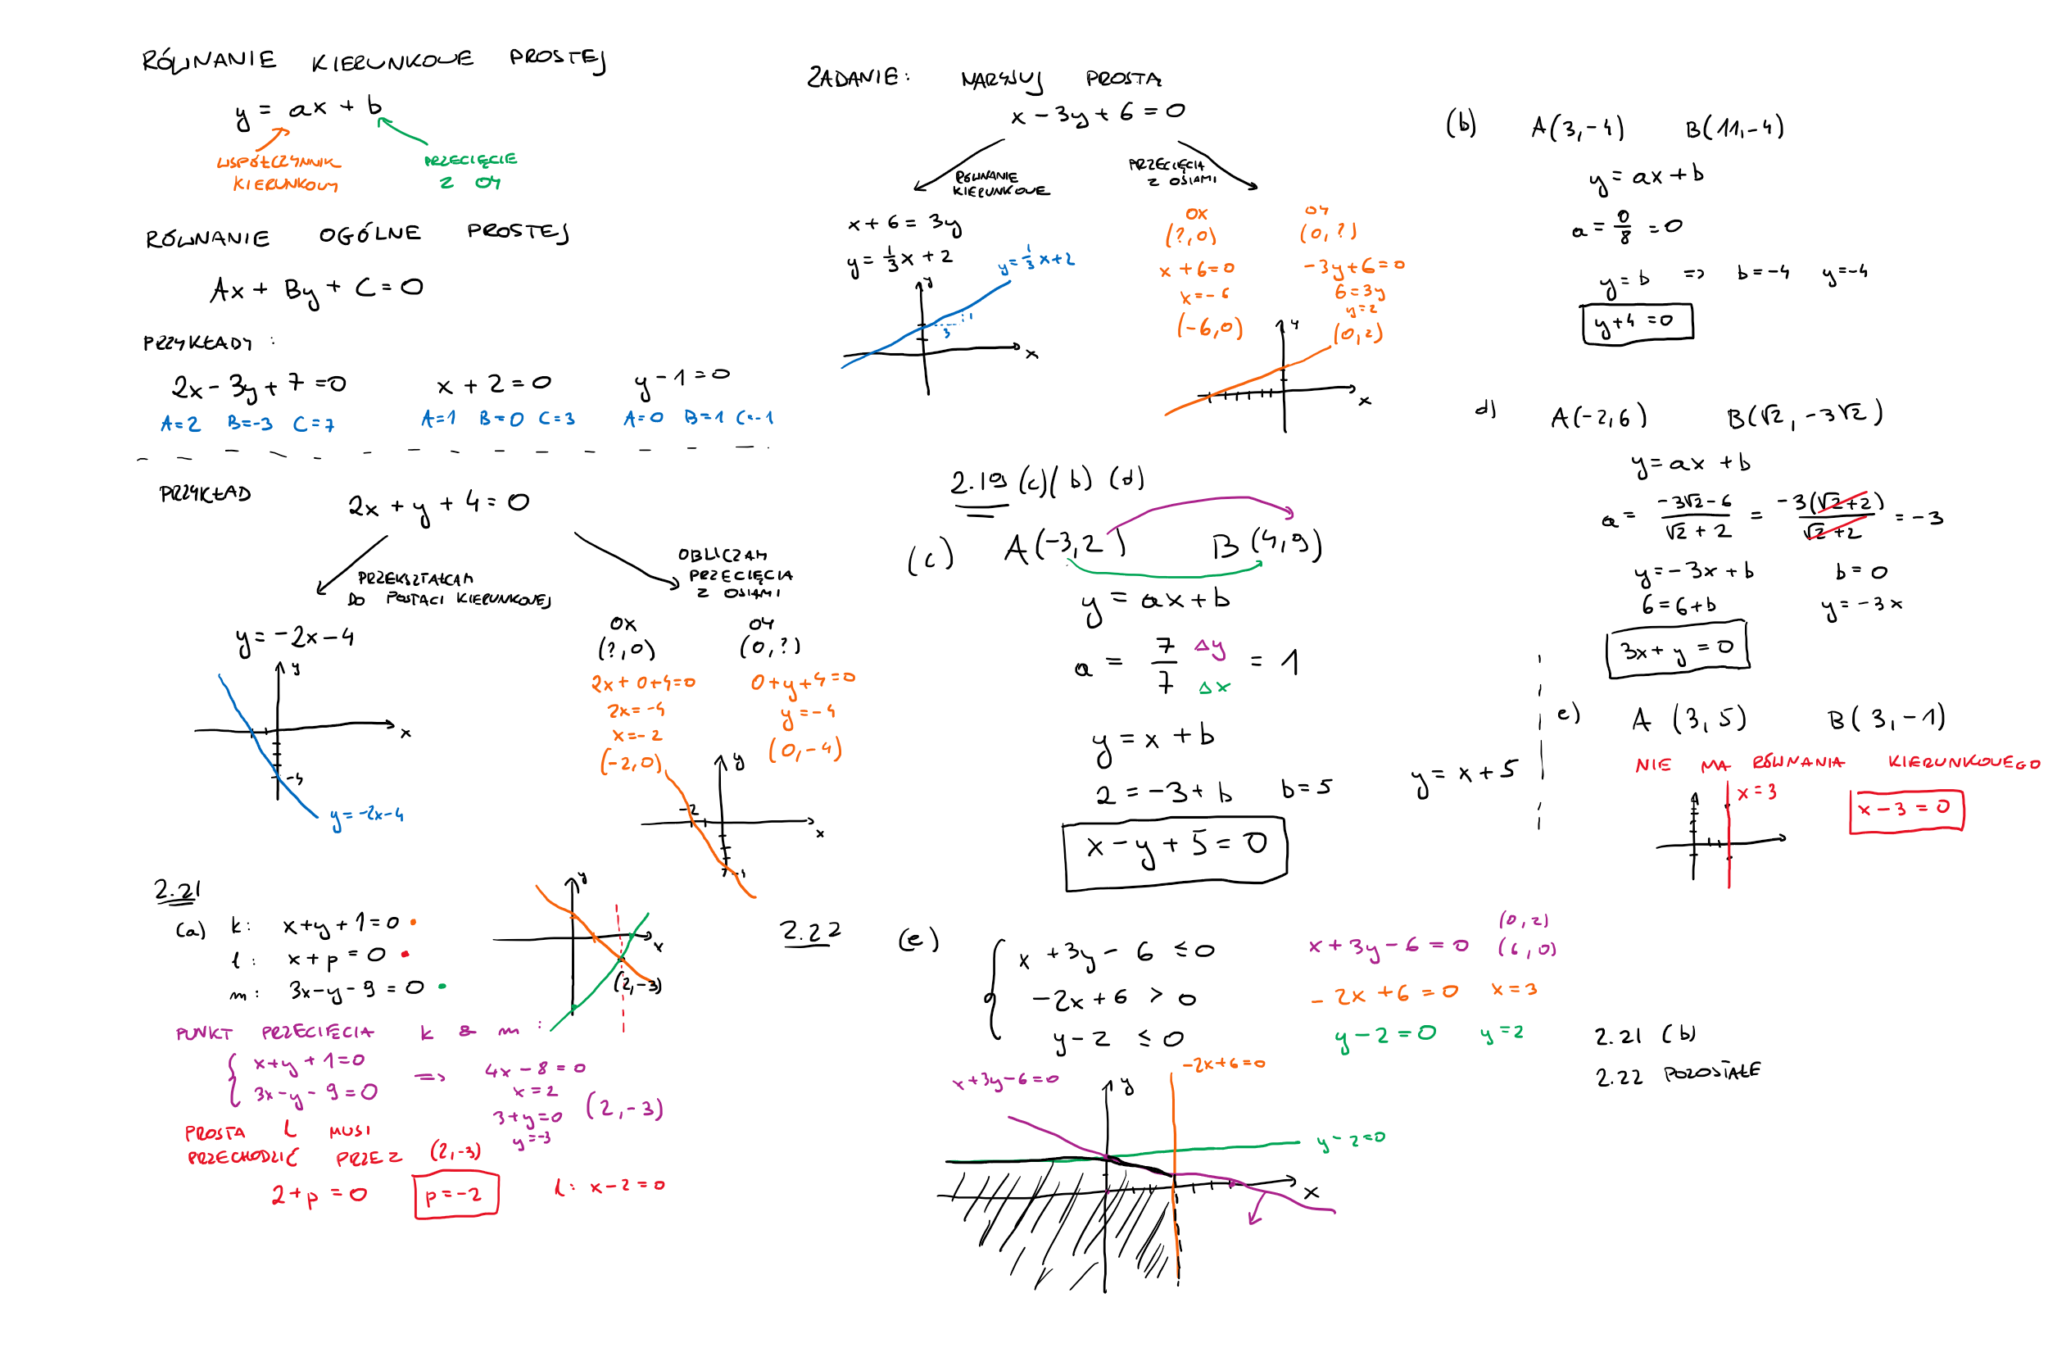 RÓWNANIE KIERUNKOWE PROSTEJ
y = ax + b
WSPÓŁCZYNNIK KIERUNKOWY
PRZECIĘCIE Z OY
RÓWNANIE OGÓLNE PROSTEJ
Ax + By + C = 0
PRZYKŁADY:
2x - 3y + 7 = 0
x + 2 = 0
y - 1 = 0
A=2 B=-3 C=7
A=1 B=0 C=3
A=0 B=1 C=-1
PRZYKŁAD
2x + y + 4 = 0
PRZEKSZTAŁCAM
DO POSTACI KIERUNKOWEJ
OBLICZAM
PRZECIĘCIA
Z OSIAMI
y = -2x - 4
y
x
-4
y = -2x-4
OX
(?,0)
2x + 0+4=0
2x=-4
x=-2
(-2,0)
OY
(0,?)
0+y+4=0
y=-4
(0,-4)
y
-2
x
-4
2.21
(a) k: x+y+1=0
l: x+p=0
m: 3x-y-9=0
y
x
(2,-3)
PUNKT PRZECIĘCIA k & m:
x+y+1=0
3x-y-9=0
=>
4x-8=0
x=2
3+y=0
y=-3
(2,-3)
PROSTA L MUSI
PRZECHODZIĆ PRZEZ (2,-3)
2+p=0
p=-2
l: x-2=0
ZADANIE: NARYSUJ PROSTĄ
x - 3y + 6 = 0
RÓWNANIE
KIERUNKOWE
PRZECIĘCIA
Z OSIAMI
x + 6 = 3y
y = 1/3 x + 2
y = 1/3 x + 2
y
1
3
x
OX
(?,0)
x+6=0
x=-6
(-6,0)
OY
(0,?)
-3y+6=0
6=3y
y=2
(0,2)
y
x
2.19 (c)(b) (d)
(c) A(-3,2) B(4,9)
y = ax+b
a = 7/7 Δy Δx = 1
y = x + b
2 = -3 + b b=5 y = x + 5
x - y + 5 = 0
(b) A(3,-4) B(11,-4)
y = ax+b
a = 0/8 = 0
y = b => b=-4 y=-4
y+4=0
d) A(-2,6) B(√2, -3√2)
y = ax + b
a = (-3√2-6)/(√2+2) = -3(√2+2)/(√2+2) = -3
y = -3x+b b=0
6=6+b y=-3x
3x+y=0
e) A (3,5) B(3,-1)
NIE MA RÓWNANIA KIERUNKOWEGO
x=3
x-3=0
2.22
(e) x+3y-6 ≤ 0
-2x+6 > 0
y-2 ≤ 0
x+3y-6=0 (0,2) (6,0)
-2x+6=0 x=3
y-2=0 y=2
x+3y-6=0
y
-2x+6=0
y-2=0
x
2.21 (b)
2.22 POZOSTAŁE